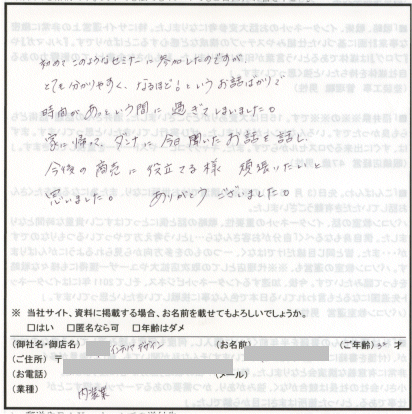 初めてこのようなセミナーに参加したのですが、
とても分かりやすく、なるほど!というお話ばかりで
時間があっという間に過ぎてしまいました。
家に帰って、ダンナに今日聞いたお話を話し、
今後の商売に役立てる様 頑張りたいと
思いました。 ありがとうございました。
※ 当社サイト、資料に掲載する場合、お名前を載せてもよろしいでしょうか。
□はい □匿名なら可 □年齢はダメ
(御社名・御店名) インテリアデザイン (お名前) (ご年齢) 才
(ご住所) 〒
(お電話) (メール)
(業種) 内装業